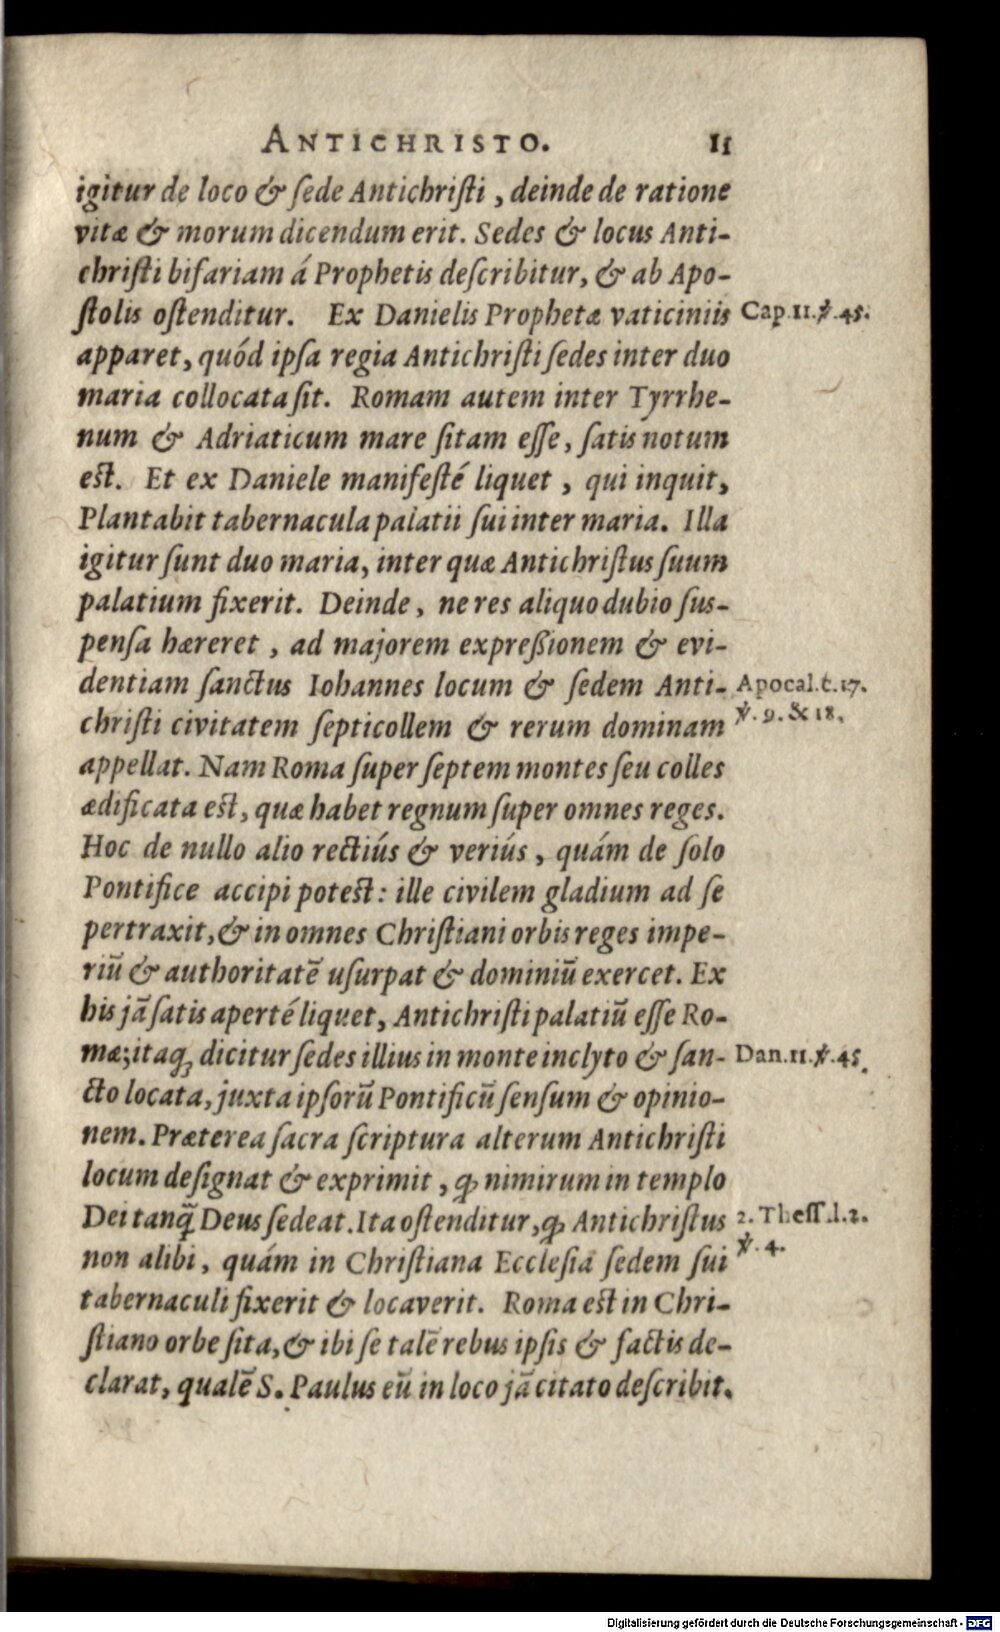 ANTICHRISTO. 11
igitur de loco & ſede Antichriſti, deinde de ratione
vitæ & morum dicendum erit. Sedes & locus Anti-
chriſti bifariam á Prophetis deſcribitur, & ab Apo-
ſtolis oſtenditur. Ex Danielis Prophetæ vaticiniis
Cap.11.℣.45.
apparet, quód ipſa regia Antichriſti ſedes inter duo
maria collocata ſit. Romam autem inter Tyrrhe-
num & Adriaticum mare ſitam eſſe, ſatis notum
est. Et ex Daniele manifeſté liquet, qui inquit,
Plantabit tabernacula palatii ſui inter maria. Illa
igitur ſunt duo maria, inter quæ Antichriſtus ſuum
palatium fixerit. Deinde, ne res aliquo dubio ſus-
penſa hæreret, ad majorem expreßionem & evi-
dentiam ſanctus Iohannes locum & ſedem Anti-
Apocal.c.17.
chriſti civitatem ſepticollem & rerum dominam
℣.9.&18.
appellat. Nam Roma ſuper ſeptem montes ſeu colles
ædificata est, quæ habet regnum ſuper omnes reges.
Hoc de nullo alio rectiús & veriús, quám de ſolo
Pontifice accipi potest: ille civilem gladium ad ſe
pertraxit, & in omnes Chriſtiani orbis reges impe-
riū & authoritatē uſurpat & dominiū exercet. Ex
his jā ſatis aperté liquet, Antichriſti palatiū eſſe Ro-
mæ; itaq; dicitur ſedes illius in monte inclyto & ſan-
Dan.11.℣.45.
cto locata, juxta ipſorū Pontificū ſenſum & opinio-
nem. Præterea ſacra ſcriptura alterum Antichriſti
locum deſignat & exprimit, ꝙ nimirum in templo
Dei tanq̃ Deus ſedeat. Ita oſtenditur, ꝙ Antichriſtus
2. Theſſ.l.2.
non alibi, quám in Chriſtiana Eccleſia ſedem ſui
℣.4.
tabernaculi fixerit & locaverit. Roma est in Chri-
ſtiano orbe ſita, & ibi ſe talē rebus ipſis & factis de-
clarat, qualē S. Paulus eū in loco jā citato deſcribit.
Digitalisierung gefördert durch die Deutsche Forschungsgemeinschaft - DFG